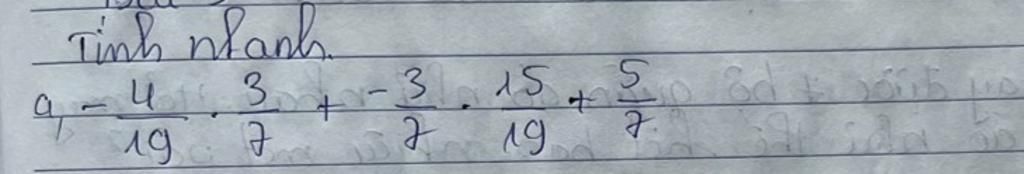 Tính nhanh.
a, -4/19 . 3/7 + -3/7 . 15/19 + 5/7.